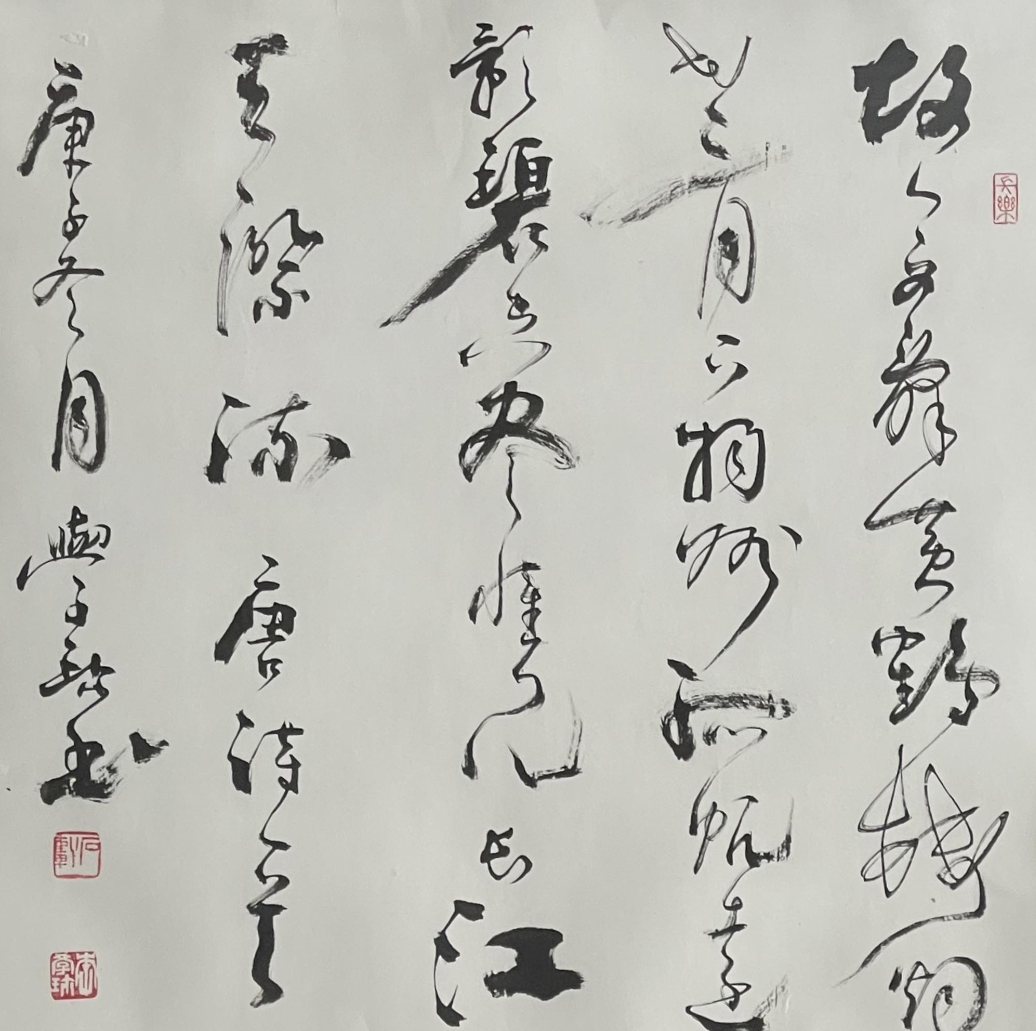 長樂
故人西辭黄鶴樓烟
花三月下揚州孤帆遠
影碧空尽惟見长江
天際流 唐詩一首
庚子冬月學書